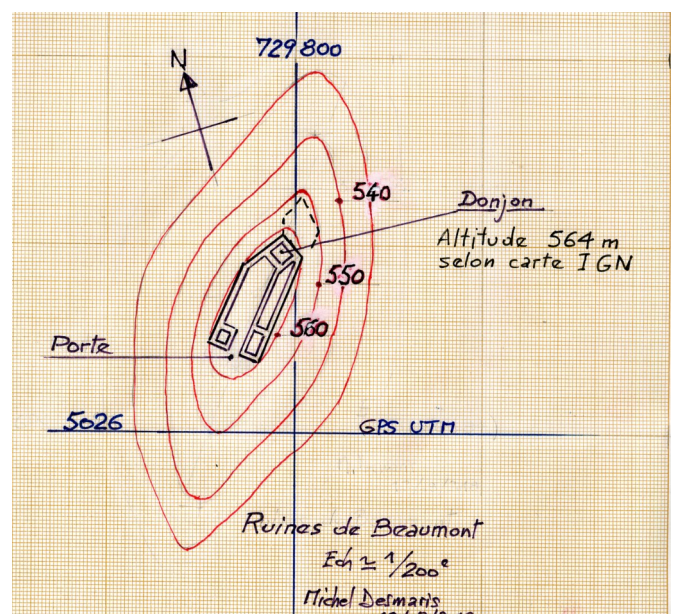 729 800
N
540
Donjon
Altitude 564 m
selon carte IGN
550
560
Porte
5026
GPS UTM
Ruines de Beaumont
Ech ≃ 1/200e
Michel Desmaris